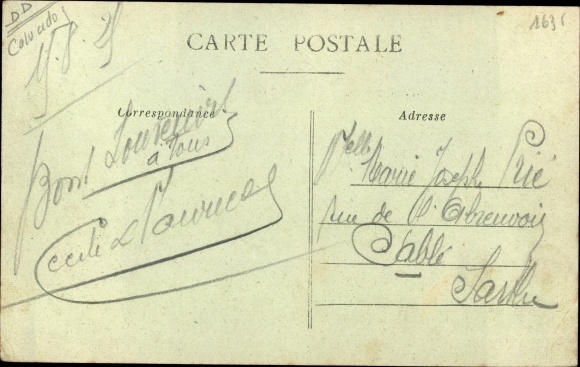 DD
Calvados
15.8.25
1636
CARTE POSTALE
Correspondance
Bons Souvenirs
à tous
Adresse
Melle Marie Joseph Prié
rue de l'Abreuvoir
Sablé
Sarthe